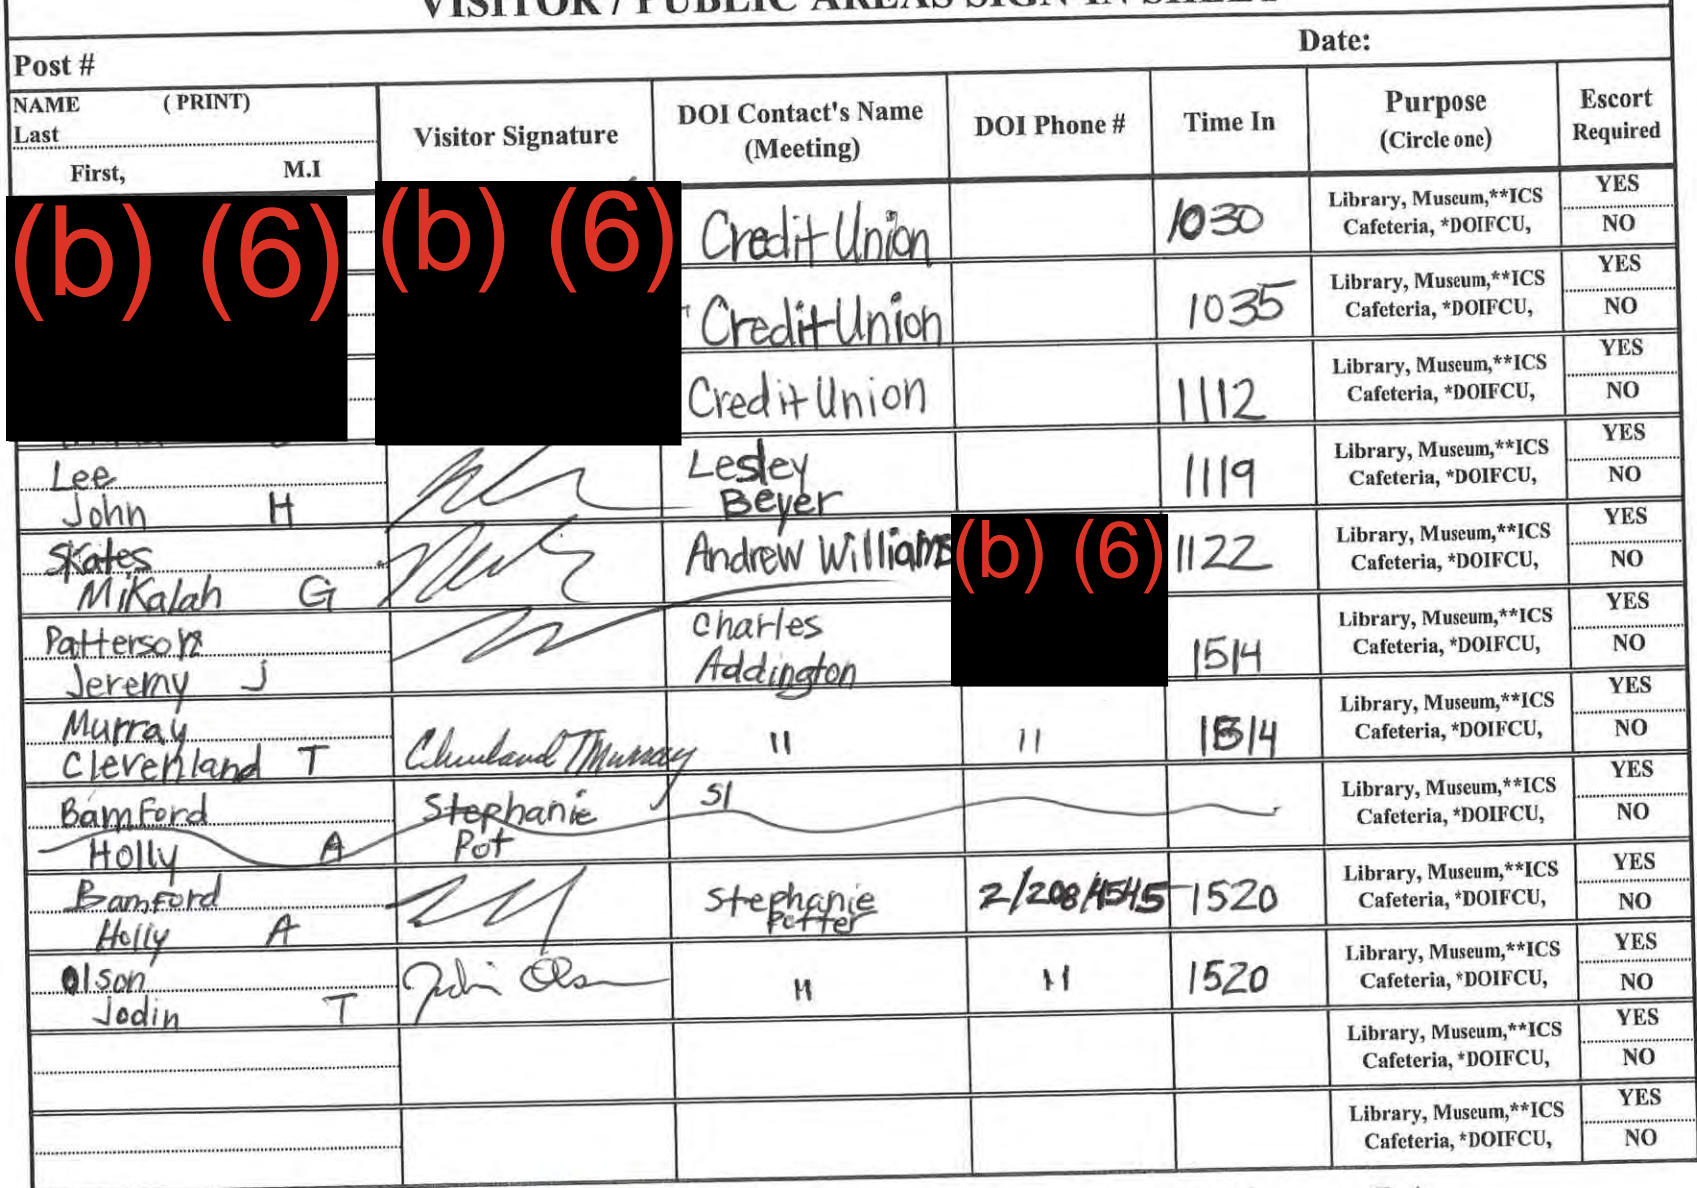 VISITOR / PUBLIC AREAS SIGN-IN SHEET
Post # Date:
NAME ( PRINT)
Last
First, M.I
Visitor Signature
DOI Contact's Name
(Meeting)
DOI Phone #
Time In
Purpose
(Circle one)
Escort
Required
(b) (6) (b) (6)
Credit Union 1030
Library, Museum,**ICS
Cafeteria, *DOIFCU,
YES
NO
Credit Union 1035
Library, Museum,**ICS
Cafeteria, *DOIFCU,
YES
NO
Credit Union 1112
Library, Museum,**ICS
Cafeteria, *DOIFCU,
YES
NO
Lee
John H
Lesley
Beyer
1119
Library, Museum,**ICS
Cafeteria, *DOIFCU,
YES
NO
Skates
Mikalah G
Andrew Williams
(b) (6)
1122
Library, Museum,**ICS
Cafeteria, *DOIFCU,
YES
NO
Patterson
Jeremy J
Charles
Addington
1514
Library, Museum,**ICS
Cafeteria, *DOIFCU,
YES
NO
Murray
Clevenland T
Cleveland Murray
" " 1514
Library, Museum,**ICS
Cafeteria, *DOIFCU,
YES
NO
BamFord
Holly A
Stephanie
Pot
51
Library, Museum,**ICS
Cafeteria, *DOIFCU,
YES
NO
Bamford
Holly A
Stephanie
Potter
2/208/4545 1520
Library, Museum,**ICS
Cafeteria, *DOIFCU,
YES
NO
Olson
Jodin T
" " 1520
Library, Museum,**ICS
Cafeteria, *DOIFCU,
YES
NO
Library, Museum,**ICS
Cafeteria, *DOIFCU,
YES
NO
Library, Museum,**ICS
Cafeteria, *DOIFCU,
YES
NO